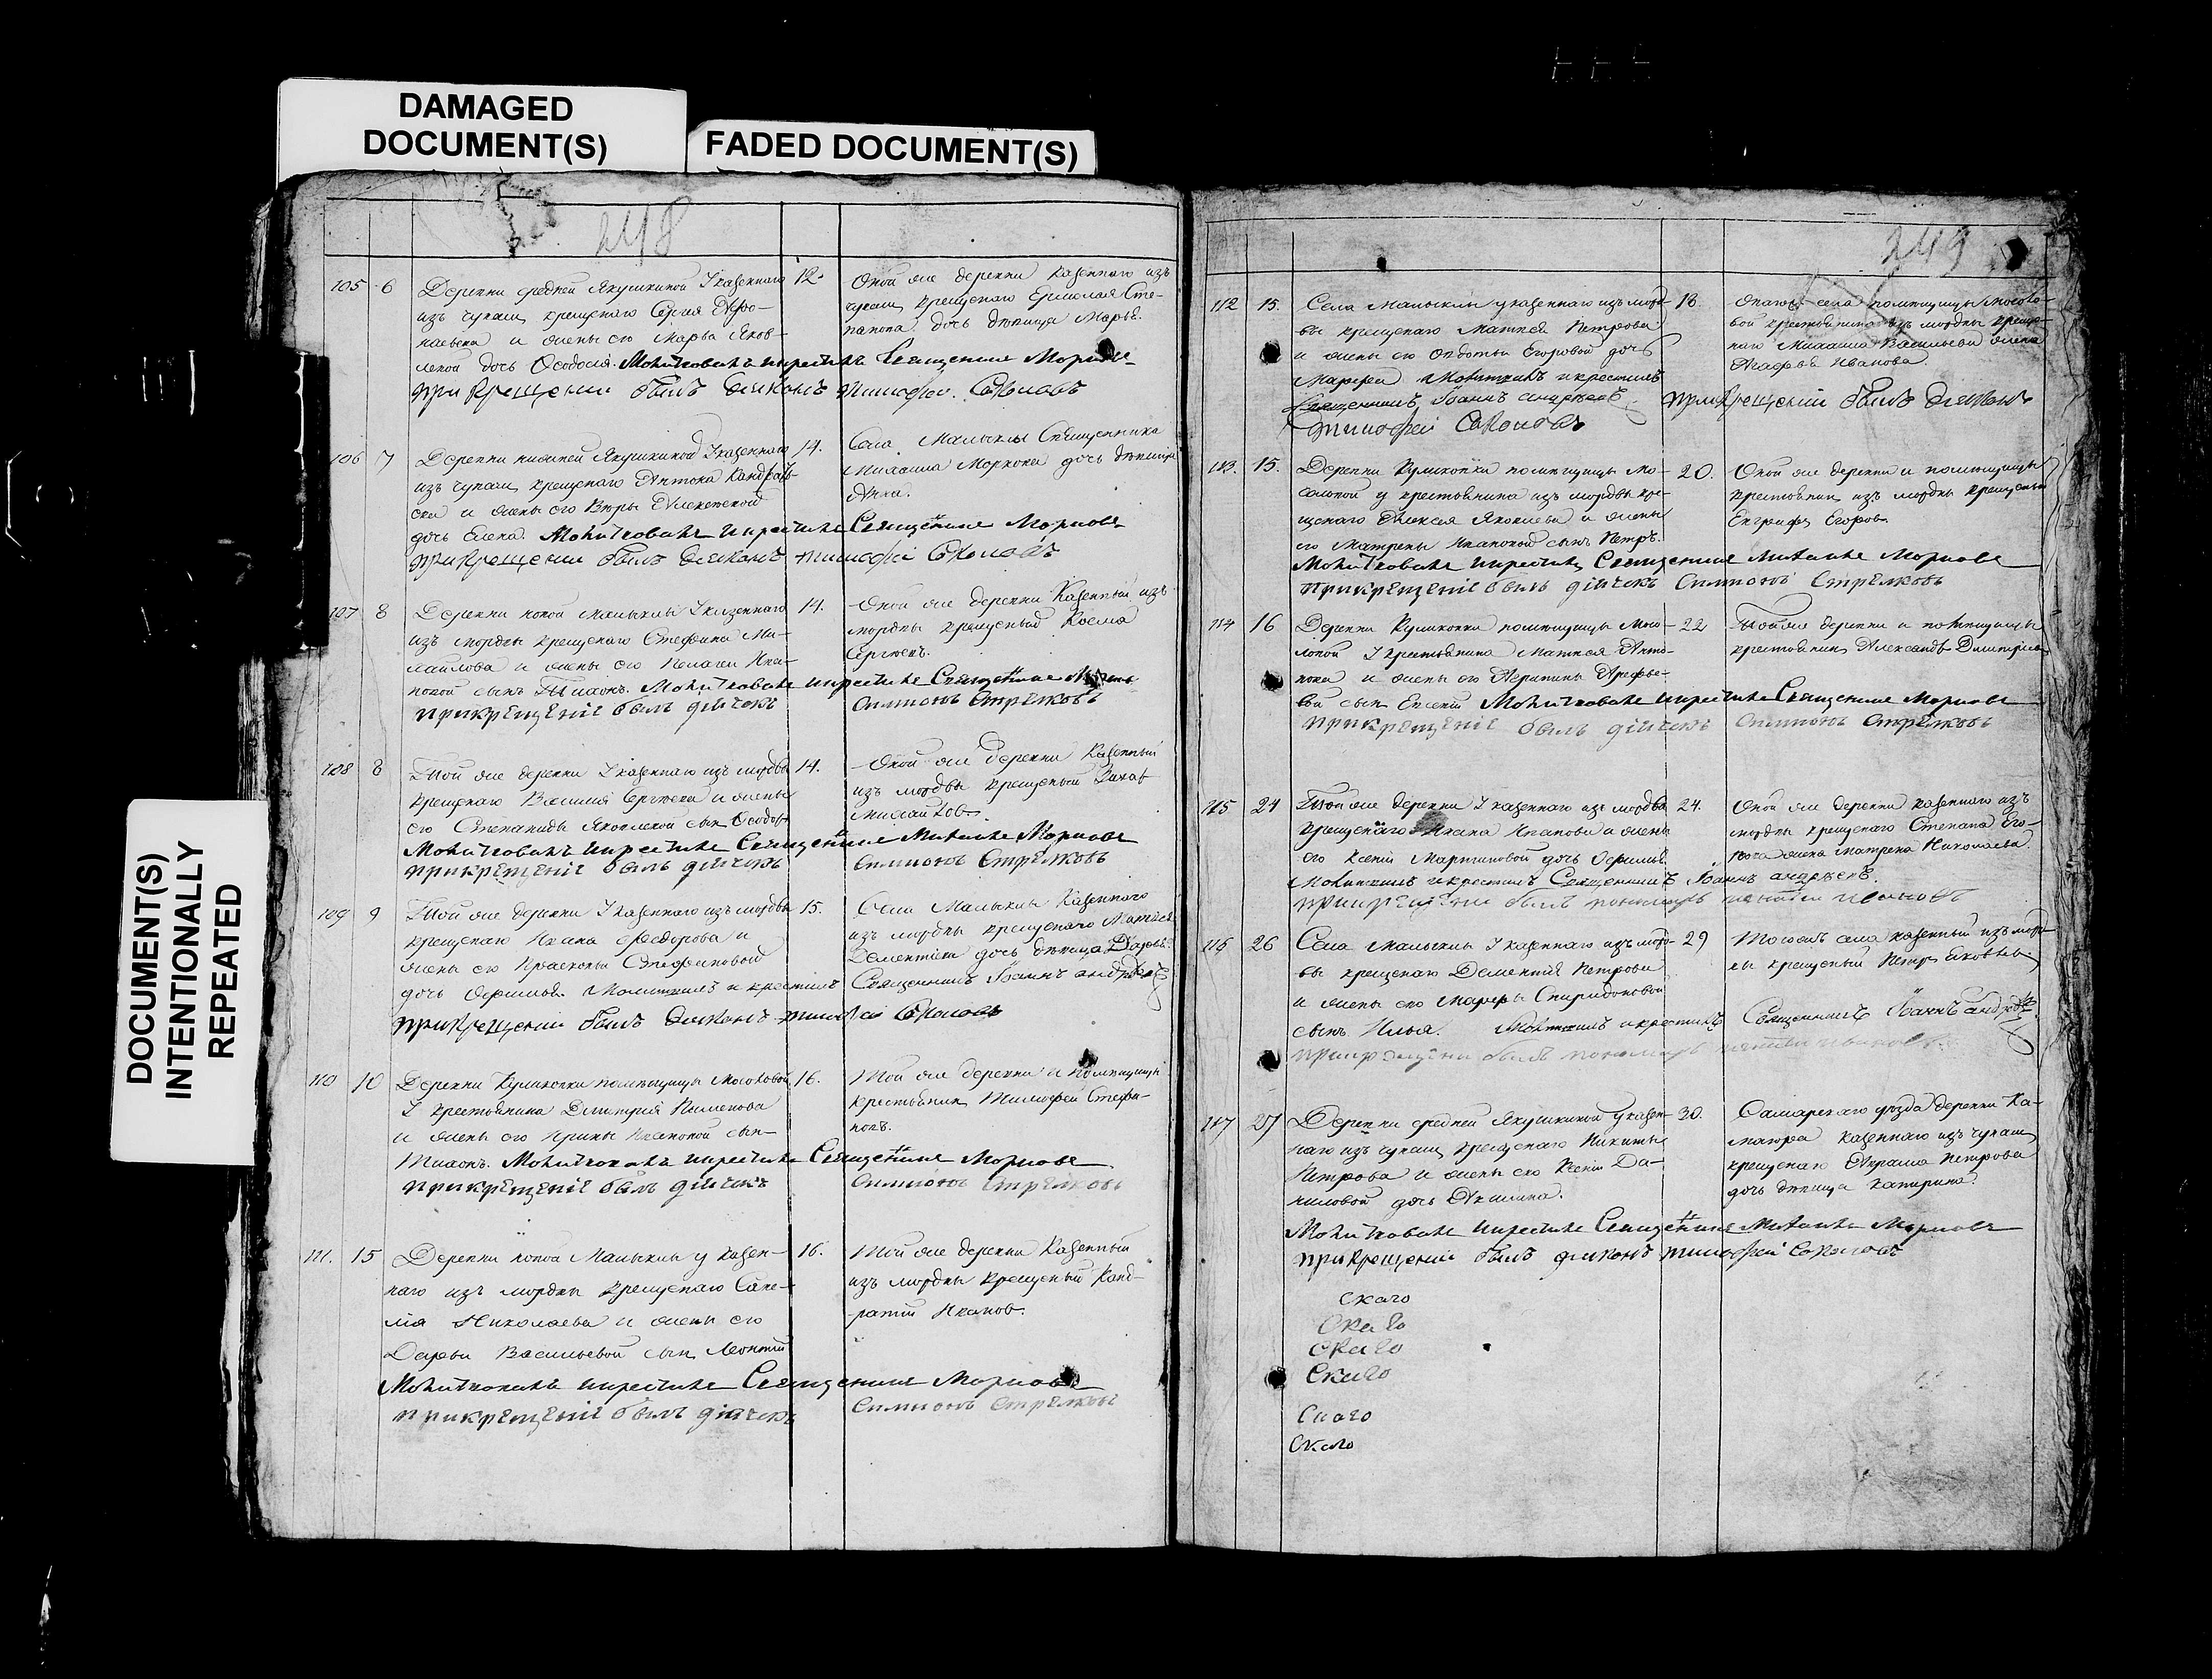 DAMAGED
DOCUMENT(S)
FADED DOCUMENT(S)
DOCUMENT(S)
INTENTIONALLY
REPEATED
248
105 6 Деревни средней Якушкиной У казеннаго 12.
изъ чувашъ крещенаго Сергея
и жены его Марѳы Яков-
левой дочь Ѳедосья. Молитвовалъ и крестилъ Священникъ Марковъ
при крещении былъ диаконъ Тимофей Соколовъ
Оной же деревни казеннаго изъ
чувашъ крещенаго Ермолая Сте-
панова дочь девица Марья.
106 7 Деревни нижней Якушкиной У казеннаго 14.
изъ чувашъ крещенаго Антона Кандрать-
ева и жены его Веры Алексеевой
дочь Елена. Молитвовалъ и крестилъ Священникъ Марковъ
при крещении былъ диаконъ Тимофей Соколовъ
Села Малыклы Священника
Михаила Маркова дочь девица
Анна.
107 8 Деревни новой Малыклы У казеннаго 14.
изъ мордвы крещенаго Стефана Ми-
хайлова и жены его Пелагеи Ива-
новой сынъ Тихонъ. Молитвовалъ и крестилъ Священникъ
при крещеніе былъ дьячекъ Симионъ Стрелковъ
Оной же деревни казенный изъ
мордвы крещеный Косма
Сергеевъ.
108 8 Той же деревни У казеннаго изъ мордвы 14.
крещенаго Василия Сергеева и жены
его Степаниды Яковлевой сынъ Ѳеодоръ
Молитвовалъ и крестилъ Священникъ Михаилъ Марковъ
при крещеніе былъ дьячекъ Симионъ Стрелковъ
Оной же деревни казенный
изъ мордвы крещеный Захаръ
Михайловъ.
109 9 Той же деревни У казеннаго изъ мордвы 15.
крещенаго Ивана Ѳедорова и
жены его Прасковьи Стефановой
дочь Ефимья. Молитвилъ и крестилъ Священникъ Іоаннъ Андреевъ
при крещеніи былъ диаконъ Тимофей Соколовъ
Села Малыклы казеннаго
изъ мордвы крещенаго
Дементия дочь девица Дарья.
110 10 Деревни Куликовки помещицы Мосоловой 16.
У крестьянина Дмитрия Пименова
и жены его Ирины Ивановой сынъ
Тихонъ. Молитвовалъ и крестилъ Священникъ Марковъ
при крещеніе былъ дьячекъ Симионъ Стрелковъ
Той же деревни и помещицы
крестьянинъ Тимофей Стефа-
новъ.
111. 15 Деревни новой Малыклы У казен- 16.
наго изъ мордвы крещенаго Саве-
лія Николаева и жены его
Дарьи Васильевой сынъ Леонтий
Молитвовалъ и крестилъ Священникъ Марковъ
при крещеніе былъ дьячекъ Симионъ Стрелковъ
Той же деревни казенный
изъ мордвы крещеный Конд-
ратий Ивановъ.
249
112 15. Села Малыклы у казеннаго изъ морд- 18.
вы крещенаго Матвея Петрова
и жены его Авдотьи Егоровой дочь
Марѳа Молитвилъ и крестилъ
Священникъ Іоаннъ Андреевъ при крещеніи былъ диаконъ
Тимофей Соколовъ
села помещицы Мосоло-
вой крестьянина изъ мордвы креще-
наго Михаила Васильева жена
Агафья Иванова.
113. 15. Деревни Куликовки помещицы Мо- 20.
соловой у крестьянина изъ мордвы кре-
щенаго Алексея Яковлева и жены
его Матрены Ивановой сынъ Петръ.
Молитвовалъ и крестилъ Священникъ Михаилъ Марковъ
при крещеніе былъ дьячекъ Симионъ Стрелковъ
Оной же деревни и помещицы
крестьянинъ изъ мордвы крещеный
Евграфъ Егоровъ.
114 16 Деревни Куликовки помещицы Мосо- 22
ловой У крестьянина Матвея Анто-
нова и жены его Арефье-
вой сынъ Евсевий Молитвовалъ и крестилъ Священникъ Марковъ
при крещеніе былъ дьячекъ Симионъ Стрелковъ
Той же деревни и помещицы
крестьянинъ Александръ Дмитриевъ
115 24 Той же деревни У казеннаго изъ мордвы 24.
крещенаго Ивана Иванова и жены
его Ксеніи Мартиновой дочь Ефимья.
Молитвилъ и крестилъ Священникъ Іоаннъ Андреевъ.
при крещении былъ пономарь
Оной же деревни казеннаго изъ
мордвы крещенаго Степана Его-
рова жена Матрена Николаева.
116 26 Села Малыклы У казеннаго изъ морд- 29
вы крещенаго Дементия Петрова
и жены его Марѳы Спиридоновой
сынъ Илья. Молитвилъ и крестилъ Священникъ Іоаннъ Андреевъ
при крещени былъ пономарь
Тогожъ села казенный изъ морд-
вы крещеный Петръ Яковлевъ
117 27 Деревни средней Якушкиной У казен- 30.
наго изъ чувашъ крещенаго Никиты
Петрова и жены его Ксеніи Да-
ниловой дочь Акилина.
Молитвовалъ и крестилъ Священникъ Михаилъ Марковъ
при крещеніи былъ диаконъ Тимофей Соколовъ
Самарскаго уезда деревни
казеннаго изъ чувашъ
крещенаго Аврама Петрова
дочь девица Катирина.